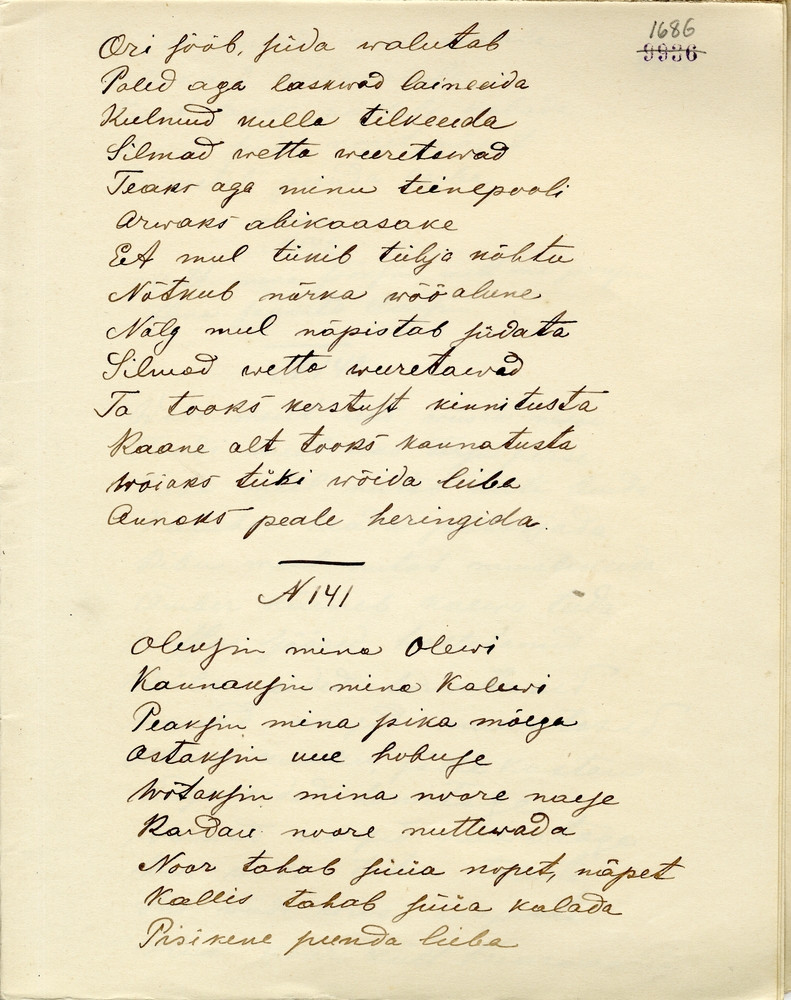 1686
9936
Ori sööb, süda walutab
Paled aga laskwad laineeida
Kulmud kulla tilkeeida
Silmad wetta weeretawad
Teaks aga minu teinepooli
Arwaks abikaasake
Et mul tiinib tühja kõhtu
Nõtkub nõrka wööalune
Nälg mul näpistab südata
Silmad wetta weeretawad
Ta tooks kerstust kinnitusta
Kaane alt tooks kannatusta
Wõiaks tüki wõida leiba
Annaks peale heringida.
N 141
Oleksin mina Olewi
Kannaksin mina Kalewi
Peaksin mina pika mõega
Ostaksin uue hobuse
Wõtaksin mina noore naese
Kardan noore nuttewada
Noor tahab süüa nopet, näpet
Kallis tahab süüa kalada
Pisikene peenda leiba